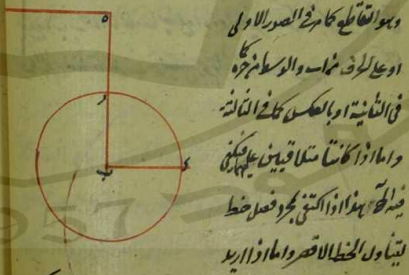 وهو التقاطع كما مر فى الصور الاولى
او على طرف من اب والوسط من حره كما
فى الثانية او بالعكس كما فى الثالثة
واما اذا كانتا متلاقيين
فيه الآ هذا اذا اكتفى بمجرد فصل خط
ليتناول الخط الاقصر واما اذا اريد
ه
ر
ب
ء
1957